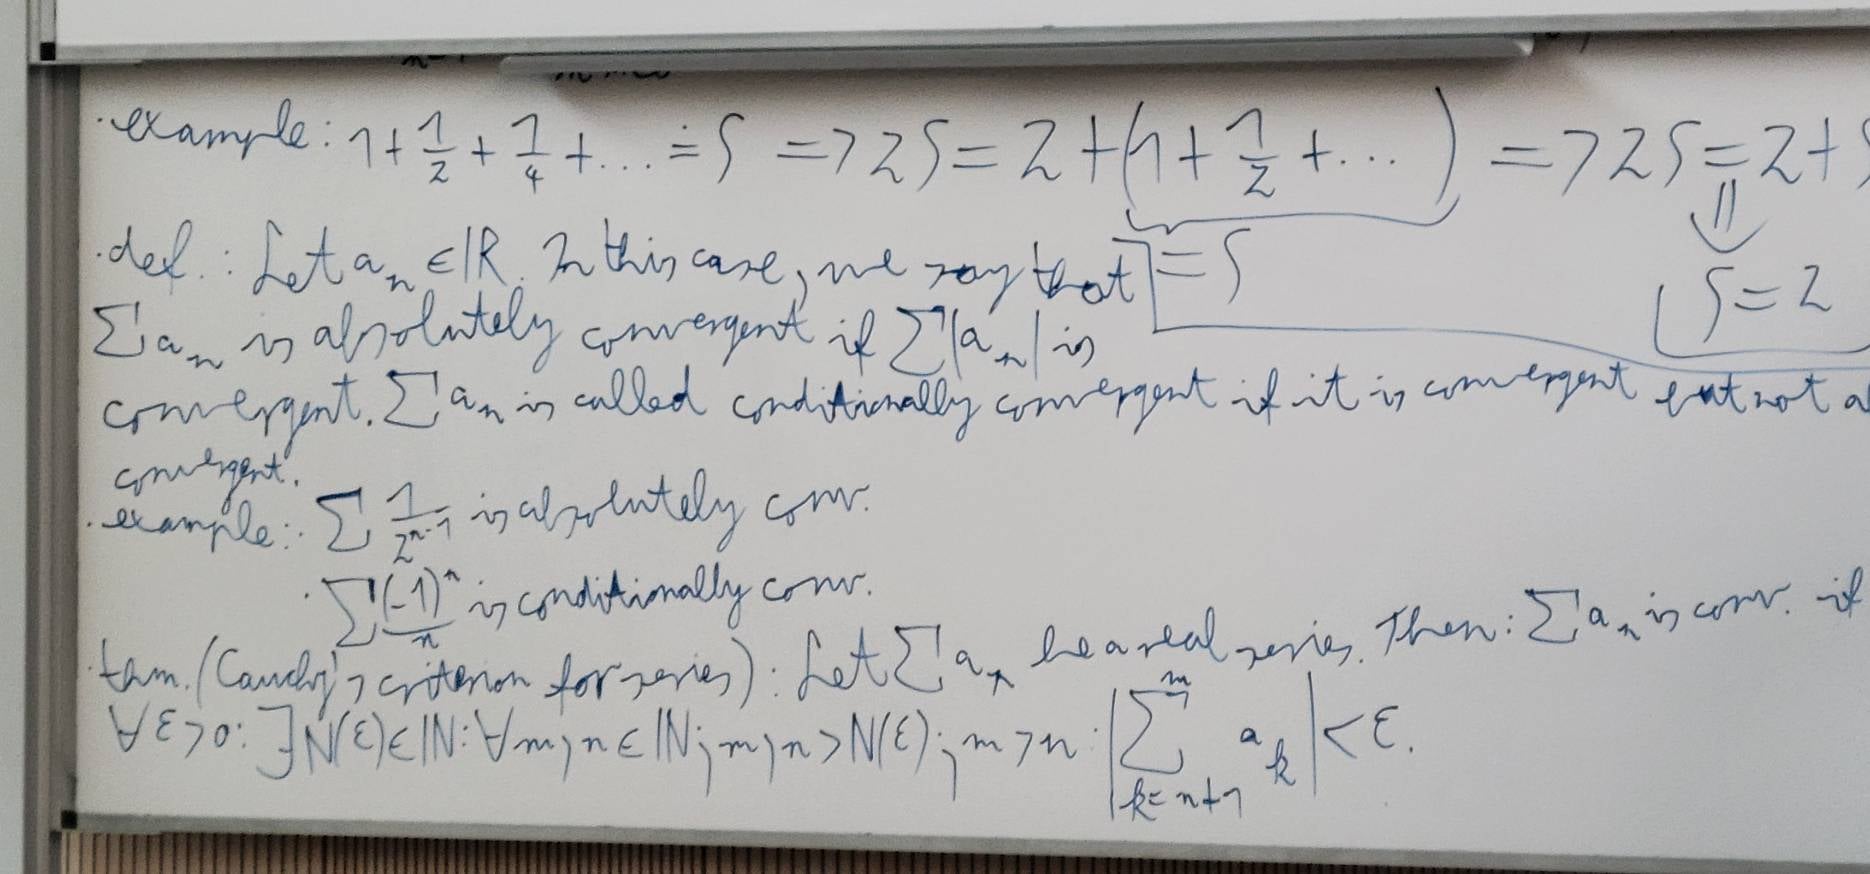 · example: 1 + 1/2 + 1/4 + ... ≐ S => 2S = 2 + (1 + 1/2 + ...) => 2S = 2 +
= S
⇓
S = 2
· def.: Let a_n ∈ ℝ. In this case, we say that
∑ a_n is absolutely convergent if ∑ |a_n| is
convergent. ∑ a_n is called conditionally convergent if it is convergent but not
convergent.
· example: · ∑ 1/2^(n-1) is absolutely conv.
· ∑ (-1)^n/n is conditionally conv.
· thm. (Cauchy's criterion for series): Let ∑ a_n be a real series. Then: ∑ a_n is conv. if
∀ε>0: ∃N(ε)∈ℕ: ∀m,n∈ℕ; m,n>N(ε); m>n: |∑_{k=n+1}^{m} a_k| < ε.